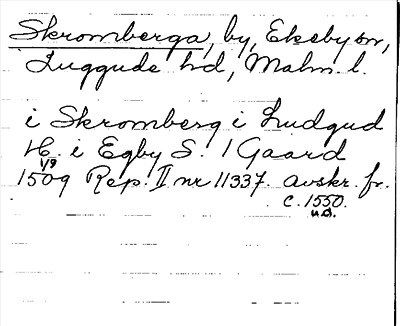 Skromberga, by, Ekeby sn,
Luggude hd, Malm. l.
i Skromberg i Ludgud
H. i Egby S. 1 Gaard
1/9
1509 Rep. II nr 11337. avskr. fr.
c. 1550.
u.a.